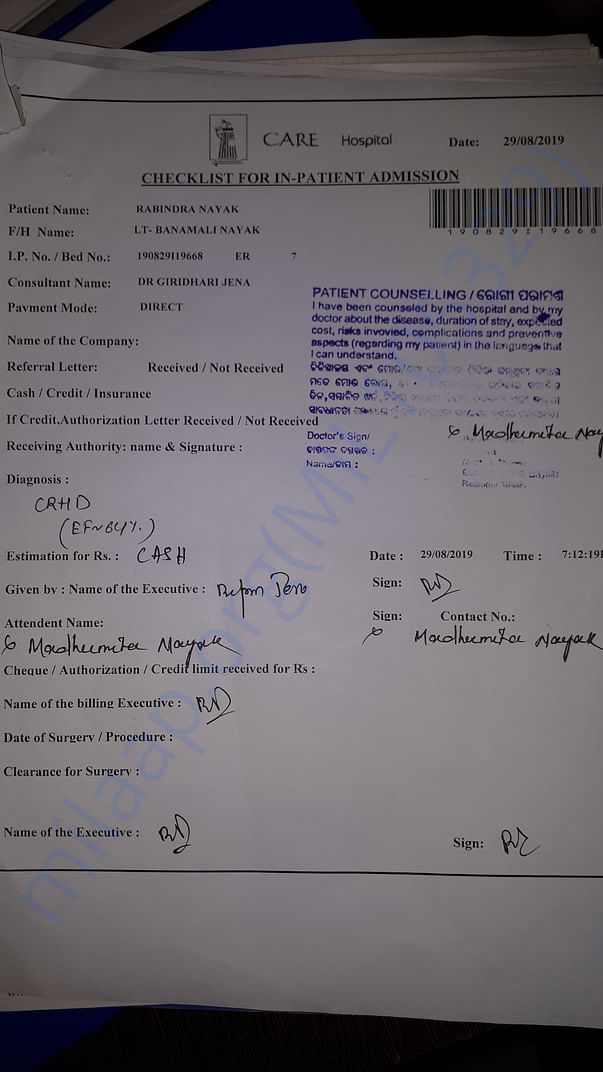 CARE Hospital
Date: 29/08/2019
CHECKLIST FOR IN-PATIENT ADMISSION
Patient Name: RABINDRA NAYAK
190829119668
F/H Name: LT- BANAMALI NAYAK
I.P. No. / Bed No.: 190829119668 ER 7
Consultant Name: DR GIRIDHARI JENA
Payment Mode: DIRECT
PATIENT COUNSELLING / ରୋଗୀ ପରାମର୍ଶ
I have been counseled by the hospital and by my
doctor about the disease, duration of stay, expected
cost, risks invovied, complications and preventive
aspects (regarding my patient) in the language that
I can understand.
Name of the Company:
Referral Letter: Received / Not Received
Cash / Credit / Insurance
If Credit,Authorization Letter Received / Not Received
Receiving Authority: name & Signature :
Doctor's Sign/
Name/ନାମ :
Madhumita Nay
Diagnosis :
CRHD
(EF~64%)
Estimation for Rs. : CASH
Date : 29/08/2019 Time : 7:12:19
Given by : Name of the Executive :
Sign:
Attendent Name:
Sign: Contact No.:
Madhumita Nayak
Madhumita Nayak
Cheque / Authorization / Credit limit received for Rs :
Name of the billing Executive :
Date of Surgery / Procedure :
Clearance for Surgery :
Name of the Executive :
Sign:
milaap.org(MIL